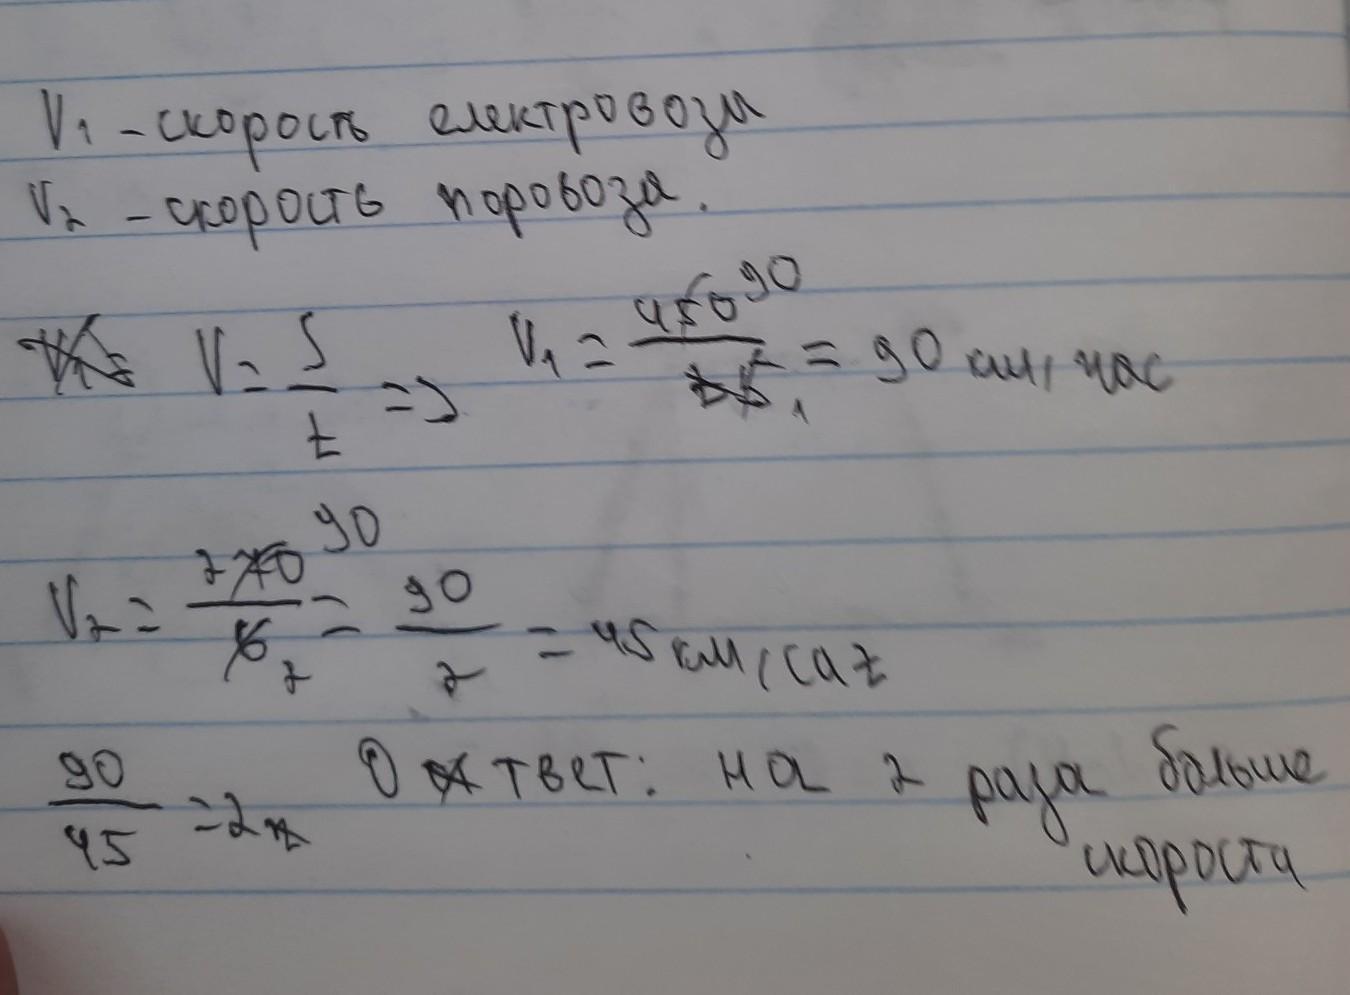 V₁ – скорость електровозы
V₂ – скорость поровоза.
V = S/t => V₁ = 450 90/5 1 = 90 км/час
V₂ = 270 90/6 2 = 90/2 = 45 км/саt
90/45 = 2 Ответ: на 2 раза больше
скорости